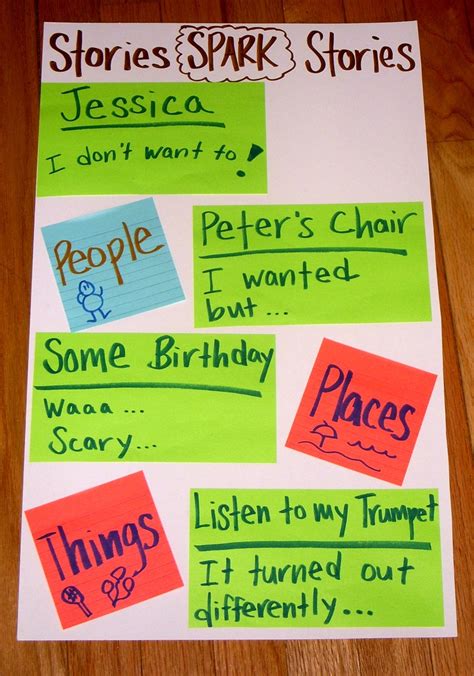 Stories SPARK Stories
Jessica
I don't want to!
People
Peter's Chair
I wanted
but...
Some Birthday
Waaa...
Scary...
Places
Things
Listen to my Trumpet
It turned out
differently...